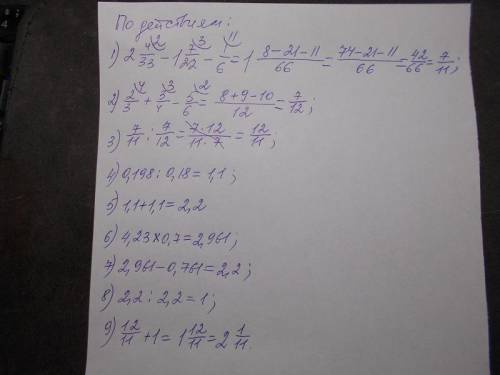 По действиям:
1) 2 4/33 - 1 7/22 - 1/6 = 1 (8-21-11)/66 = (74-21-11)/66 = 42/66 = 7/11;
2) 2/3 + 3/4 - 5/6 = (8+9-10)/12 = 7/12;
3) 7/11 : 7/12 = (7·12)/(11·7) = 12/11;
4) 0,198 : 0,18 = 1,1;
5) 1,1+1,1=2,2
6) 4,23×0,7=2,961;
7) 2,961-0,761=2,2;
8) 2,2 : 2,2 = 1;
9) 12/11 + 1 = 1 12/11 = 2 1/11.